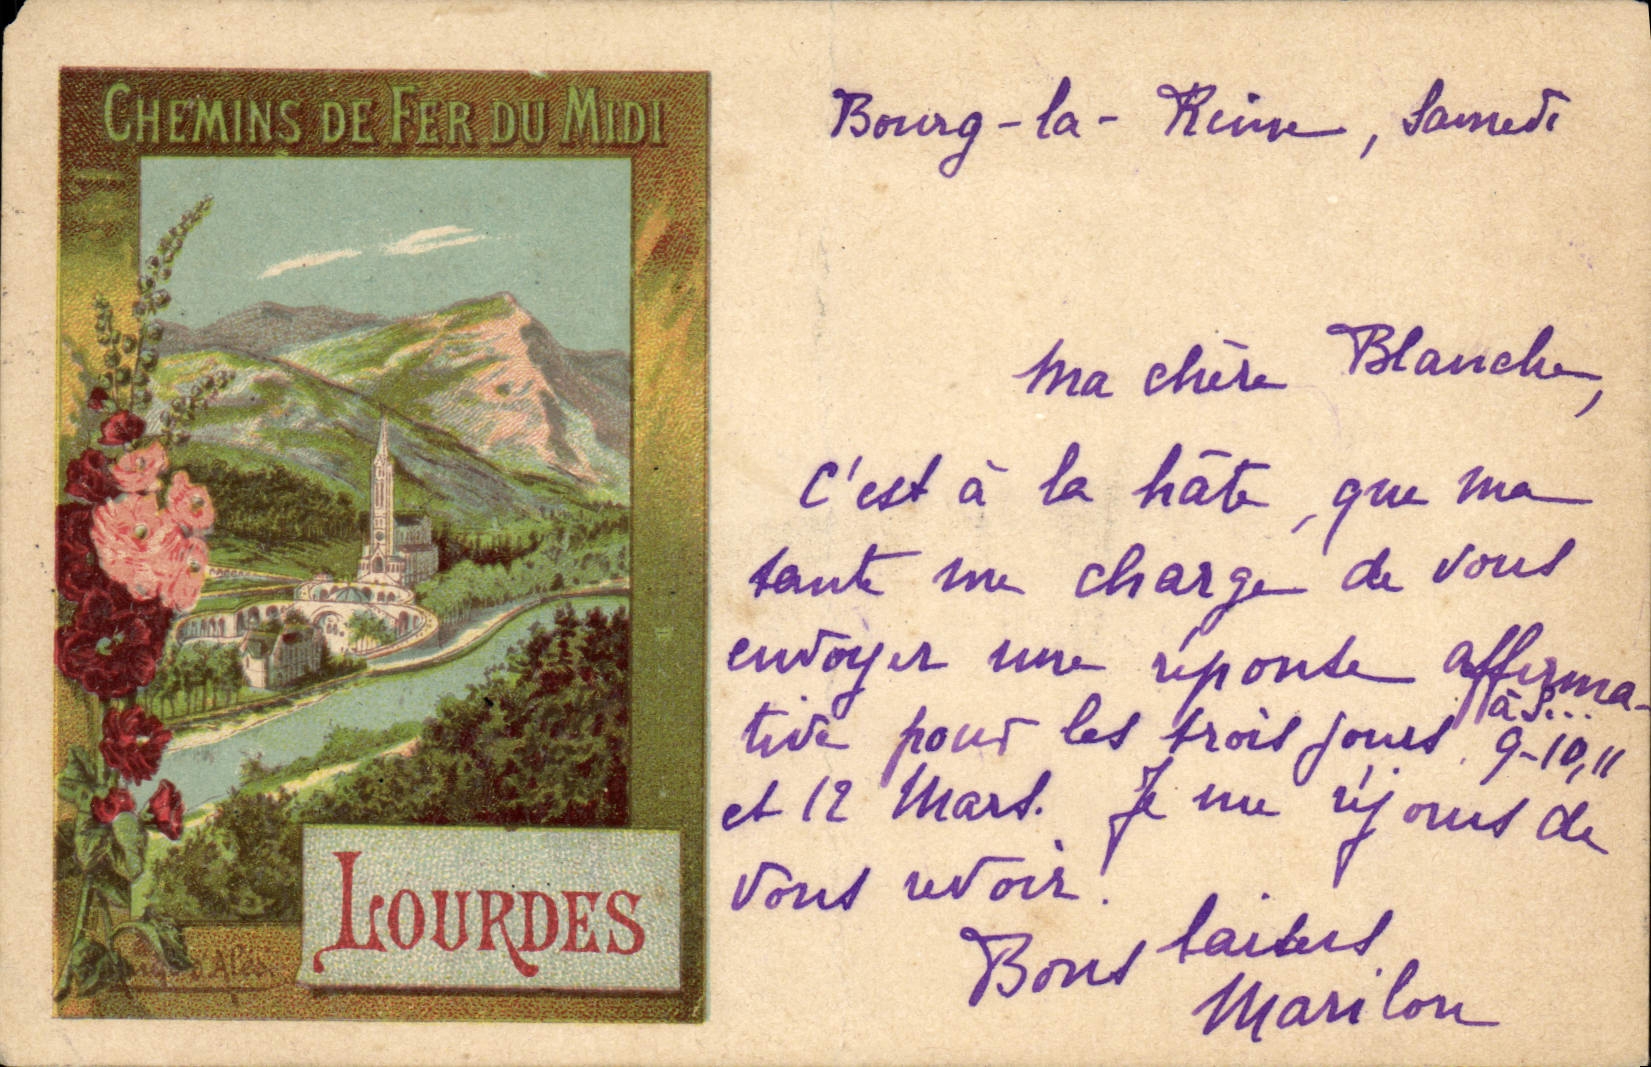 CHEMINS DE FER DU MIDI
LOURDES
Bourg-la-Reine, Samedi
Ma chère Blanche,
C'est à la hâte, que ma
tante me charge de vous
envoyer une réponse affirma-
tive pour les trois jours à S... 9-10, 11
et 12 Mars. Je me réjouis de
vous revoir.
Bons baisers
Marilou